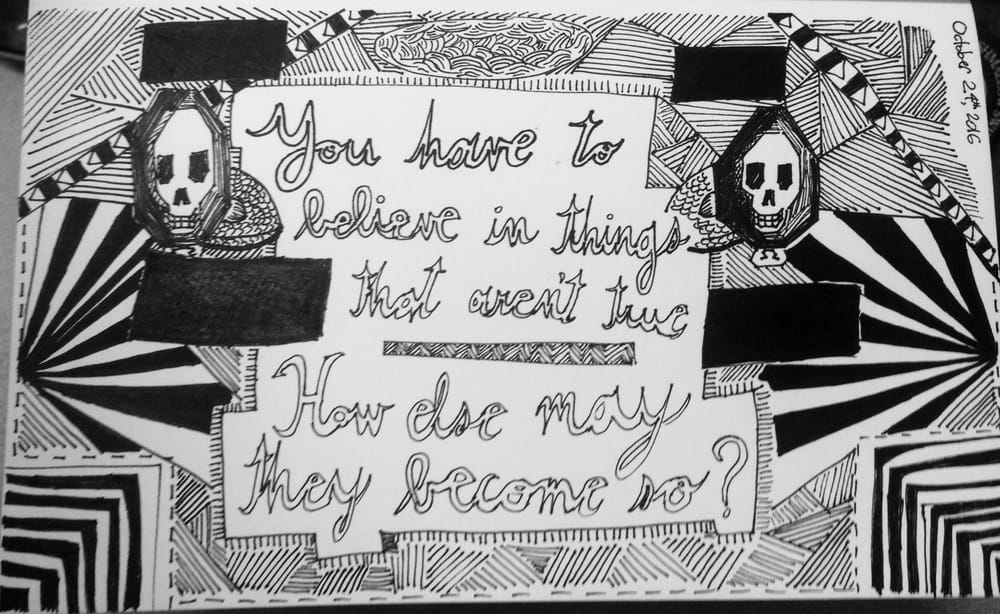 October 24th, 2016
You have to
believe in things
that aren't true
How else may
they become so?
Ω